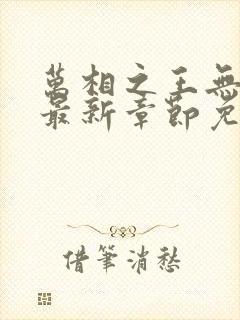 萬相之王無
最新章節免
借筆消愁